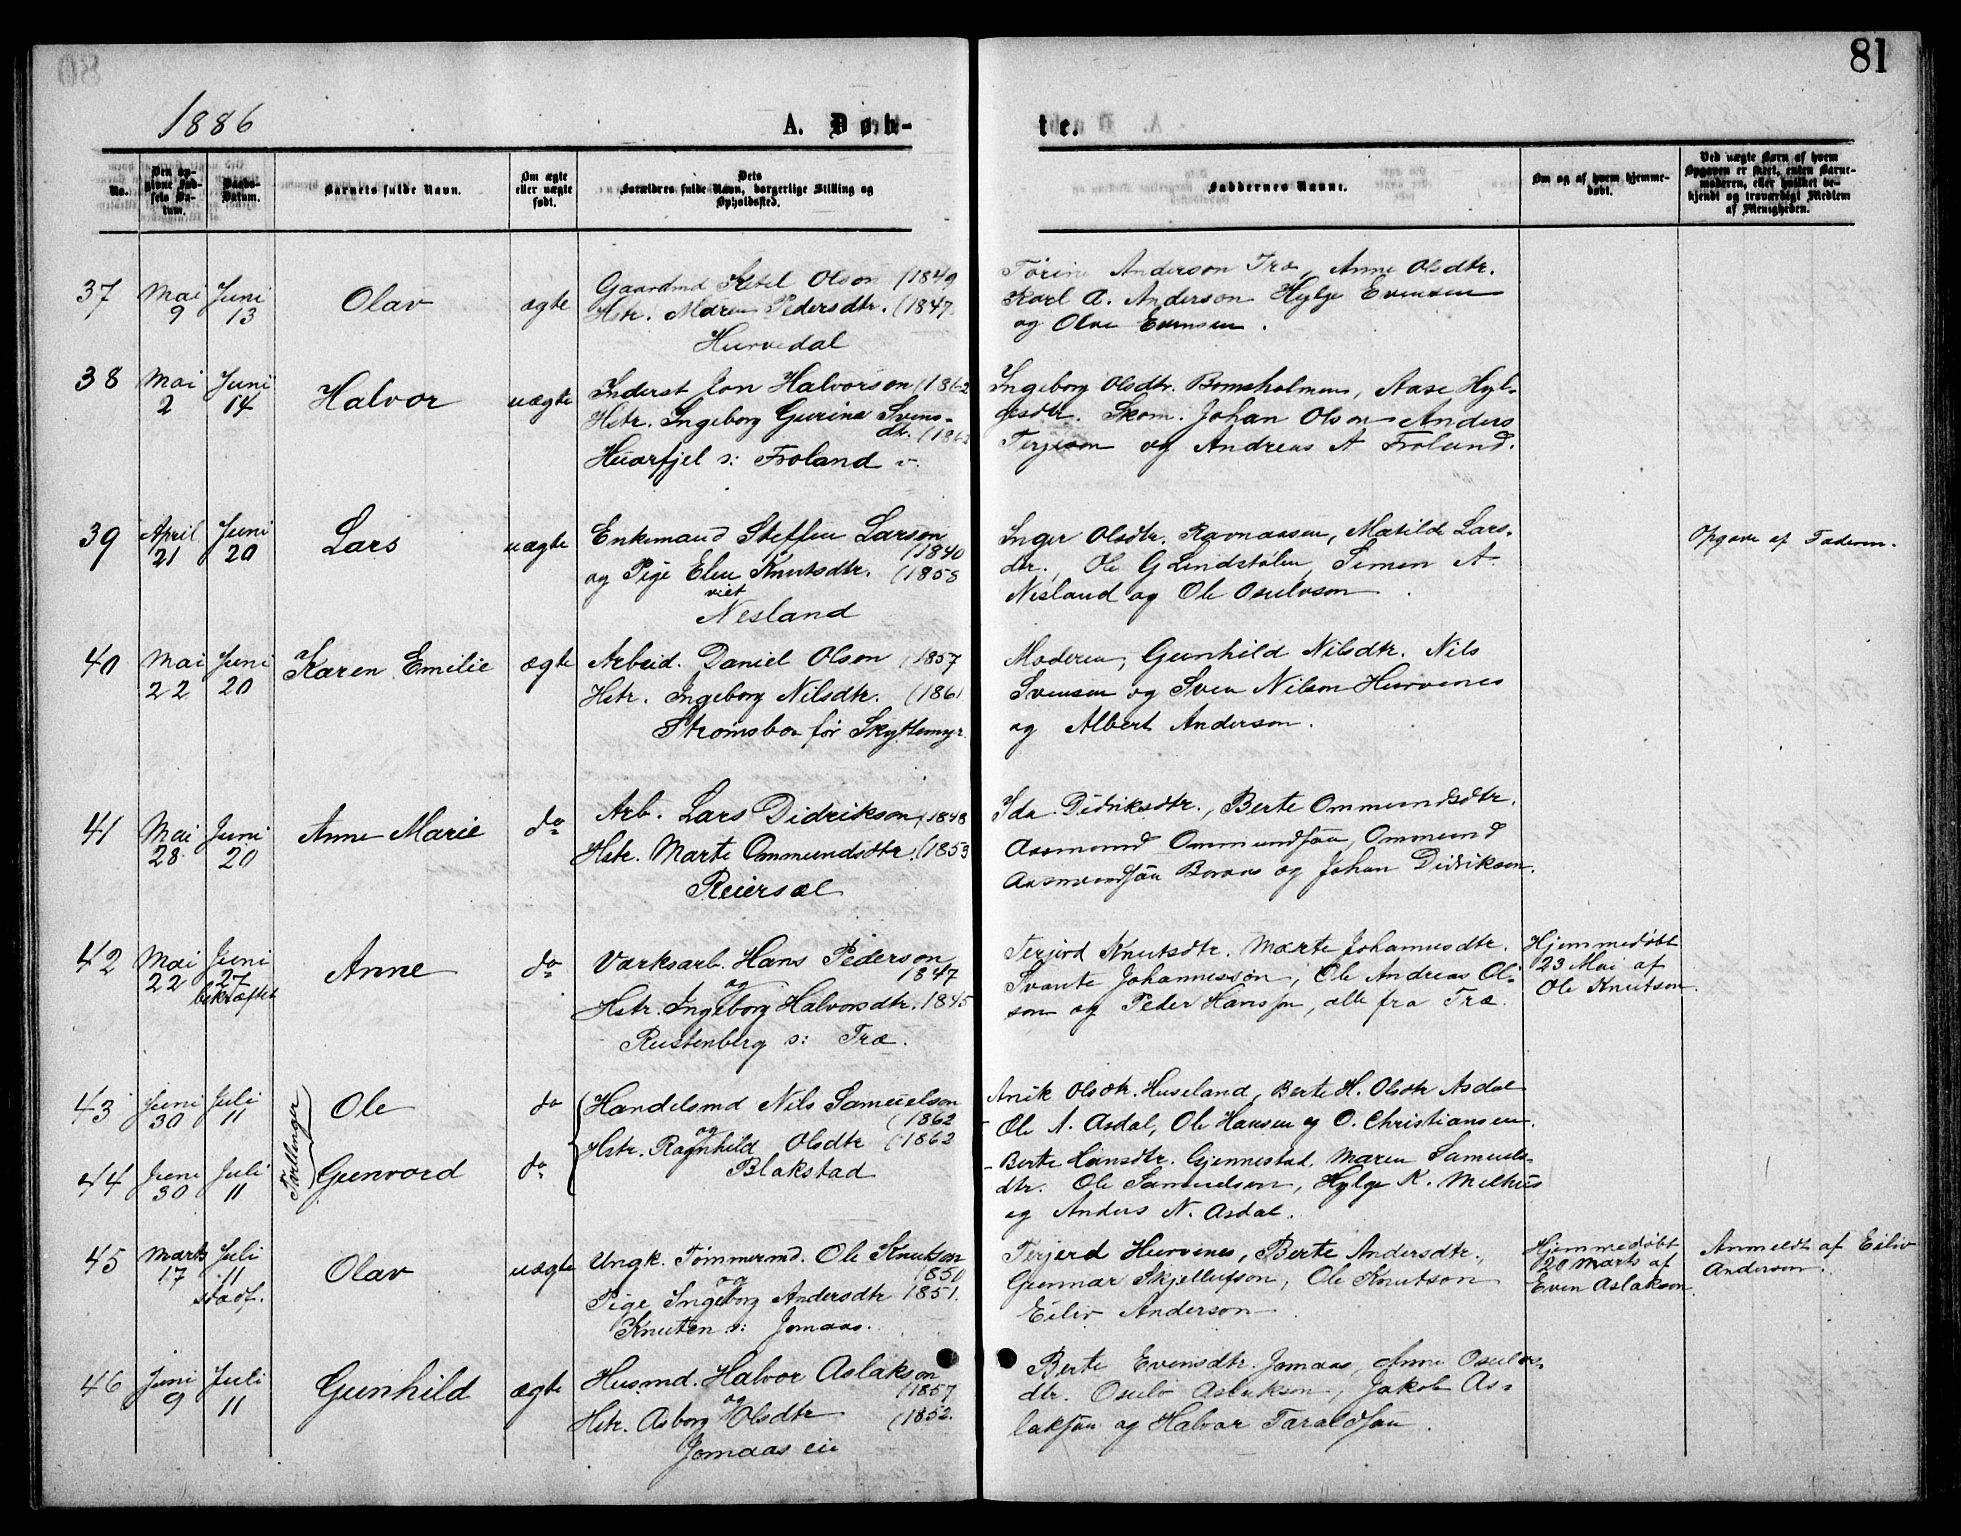 81
1886
A. Døb-
te.
No.
Den op-
givne Fød-
sels Da-
tum.
Daabs-
Datum.
Barnets fulde Navn.
Om ægte
eller uægte
født.
Dets
Forældres fulde Navn, borgerlige Stilling og
Opholdssted.
Faddernes Navne.
Om og af hvem hjemme-
døbt.
Ved uægte Børn af hvem
Opgaven er skeet, enten Barne-
moderen, eller hvilket be-
kjendt og troværdigt Medlem
af Menigheden.
37 Mai 9 Juni 13 Olav ægte
Gaardmd Ketel Olson (1849
Hstr. Maren Pedersdtr. (1847
Hurvedal
Torine Anderson Træ, Anne Olsdtr.
Karl A. Anderson Hylge Evensen
og Olav Evensen.
38 Mai 2 Juni 14 Halvor uægte
Inderst Jon Halvorson (1862
Hstr. Ingeborg Gurine Svens-
dtr. (186
Huarfjel s: Froland v.
Ingeborg Olsdtr. Bomsholmen, Aase Hyl-
gesdtr. Skom. Johan Olson Anders
Terjeson og Andreas A Froland.
39 April 21 Juni 20 Lars uægte
Enkemand Steffen Larson
(1840
og Pige Elen Knutsdtr. (1858
viet
Nesland
Inger Olsdtr. Ravnaasen, Matilde Lars-
dtr., Ole G Lindstølen, Simen A.
Nesland og Ole Osulvson
Opgave af Faderen.
40 Mai 22 Juni 20 Karen Emilie ægte
Arbeid. Daniel Olson (1857
Hstr. Ingeborg Nilsdtr. (1861
Strømsbo før Skyttemyr
Moderen, Gunhild Nilsdtr. Nils
Svensen og Sven Nilson Hurvenes
og Albert Anderson.
41 Mai 28 Juni 20 Anne Marie do
Arb. Lars Didrikson (1848
Hstr. Marte Ommundsdtr. (1853
Reiersæl
Ida Didriksdtr., Berte Ommundsdtr.
Aasmund Ommundsøn, Ommund
Aasmundsøn Boraas og Johan Didrikson.
42 Mai 22 Juni 27 bekræftet Anne do
Værksarb. Hans Pederson
1847
og
Hstr. Ingeborg Halvorsdtr. 1845
Rustenberg s: Træ.
Terjerd Knutsdtr. Marte Johannesdtr.
Svante Johannessøn, Ole Andreas Ol-
son og Peder Hansøn, alle fra Træ.
Hjemmedøbt
23 Mai af
Ole Knutson.
Tvillinger
43 Juni 30 Juli 11 Ole do
44 Juni 30 Juli 11 Gunvord do
Handelsmd Nils Samuelson
(1862
og
Hstr. Ragnhild Olsdtr (1862
Blakstad
Anik Olsdtr. Huseland, Berte H. Olsdtr Asdal
Ole N. Asdal, Ole Hansen og O. Christiansen.
- Berte Hansdtr. Gjennestad, Maren Samuels-
dtr. Ole Samuelson, Hylge K. Melhus
og Anders N. Asdal.
45 Marts 17 Juli 11 stadf. Olav uægte
Ungk. Tømmermd. Ole Knutson
(1850
og
Pige Ingeborg Andersdtr 1851.
Knuten s: Jomaas.
Terjerd Hurvenes, Berte Andersdtr,
Gunnar Skjellufson, Ole Knutson
Eiliv Anderson
Hjemmedøbt
20 Marts af
Even Aslakson.
Anmeldt af Eiliv
Anderson.
46 Juni 9 Juli 11 Gunhild ægte
Husmd. Halvor Aslakson
(1857
og
Hstr. Asborg Olsdtr (1852.
Jomaas eie
Berte Evensdtr. Jomaas, Anne Osulvs-
dtr. Osulv Aslakson, Jakob As-
laksøn og Halvor Taraldsøn.